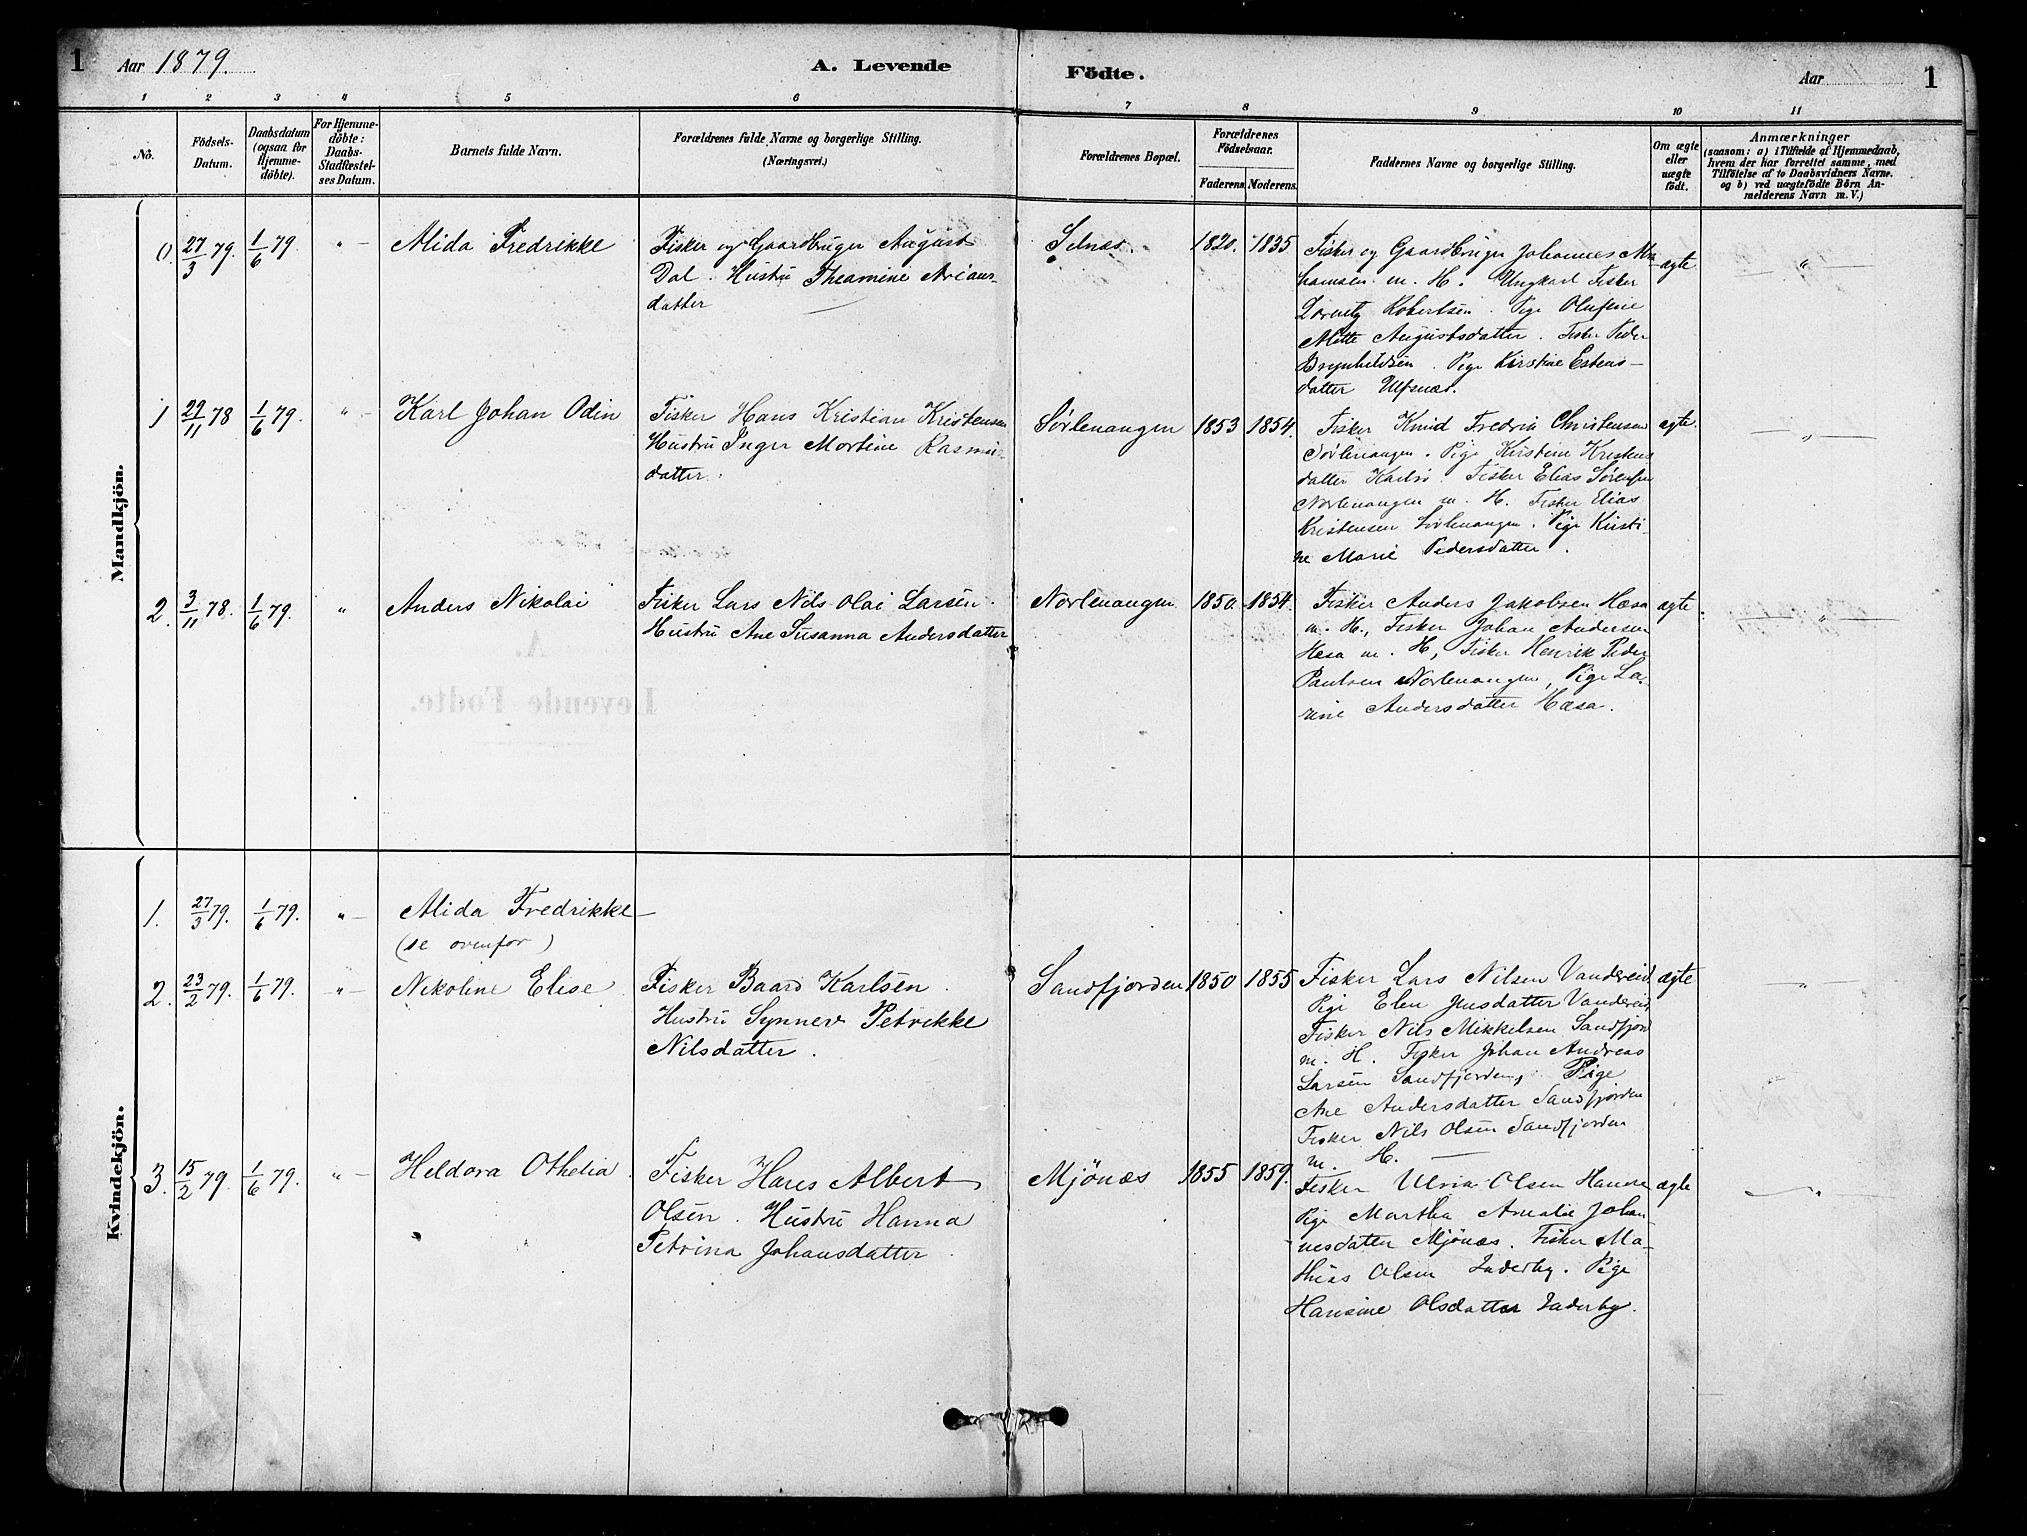 1 Aar 1879. A. Levende Födte. Aar 1
1 2 3 4 5 6 7 8 9 10 11
No.
Födsels-Datum.
Daabsdatum (ogsaa for Hjemme-döbte).
For Hjemme-döbte: Daabs-Stadfæstel-ses Datum.
Barnets fulde Navn.
Forældrenes fulde Navne og borgerlige Stilling.
(Næringsvei.)
Forældrenes Bopæl.
Forældrenes Födselsaar.
Faderens. Moderens.
Faddernes Navne og borgerlige Stilling.
Om ægte eller uægte födt.
Anmærkninger
(saasom: a) i Tilfælde af Hjemmedaab,
hvem der har forrettet samme, med
Tilföielse af to Daabsvidners Navne.
og b) ved uægtefödte Börn An-
melderens Navn m. V.)
Mandkjön.
0. 27/3 79. 1/6 79. " Alida Fredrikke
Fisker og Gaardbruger August
Dal. Hustru Theamine Arians-
datter
Selnæs. 1820. 1835
Fisker og Gaardbruger Johannes
m. H. Ungkarl Fisker
Lorentz Robertsen. Pige Olufine
Mette Augustsdatter. Fisker Peder
Brynhildsen. Pige Kirstine Estens-
datter Ulfsnæs.
ægte "
1 29/11 78 1/6 79. " Karl Johan Odin
Fisker Hans Kristian Kristensen
Hustru Inger Mortine Rasmus-
datter.
Sørlenangen 1853 1854.
Fisker Knud Fredrik Christensen
Sørlenangen. Pige Kirstine Kristens
datter Karlsø. Fisker Elias Sørensen
Norlenangen m. H. Fisker Elias
Kristensen Sørlenangen. Pige Kirsti-
ne Marie Pedersdatter.
ægte "
2. 3/11 78. 1/6 79. " Anders Nikolai
Fisker Lars Nils Olai Larsen.
Hustru Ane Susanna Andersdatter
Norlenangen 1850. 1854.
Fisker Anders Jakobsen Hæsa
m. H., Fisker Johan Andersen
Hæsa m. H, Fisker Henrik Peder
Paulsen Norlenangen, Pige La-
rine Andersdatter Hæsa.
ægte "
Kvindekjön.
1. 27/3 79. 1/6 79. " Alida Fredrikke
(se ovenfor)
2. 23/2 79. 1/6 79. " Nikoline Elise
Fisker Baard Karlsen.
Hustru Synnev Petrikke
Nilsdatter.
Sandfjorden 1850 1855
Fisker Lars Nilsen Vandereid
Pige Elen Jensdatter Vandereid,
Fisker Nils Mikkelsen Sandfjord
m. H. Fisker Johan Andreas
Larsen Sandfjorden, Pige
Ane Andersdatter Sandfjorden
Fisker Nils Olsen Sandfjorden
m. H.
ægte "
3. 15/2 79. 1/6 79. " Heldora Othelia
Fisker Hans Albert
Olsen. Hustru Hanna
Petrina Johansdatter
Mjönæs 1855 1859.
Fisker Ulrik Olsen
Pige Martha Amalie Johan-
nesdatter Mjönæs. Fisker Ma-
thias Olsen Inderby. Pige
Hansine Olsdatter Inderby.
ægte "
A.
Levende Fødte.